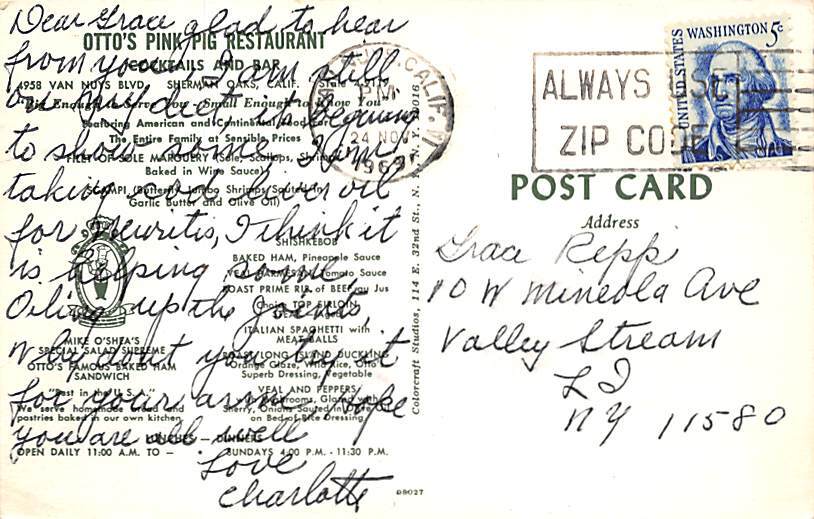 Dear Grace glad to hear
from you, I am still
on my diet it beginning
to show some. I am
taking cod liver oil
for neuritis, I think it
is helping some,
Oiling up the joints,
Why don't you try it
for your arm, Hope
you are all well
Love
Charlotte
OTTO'S PINK PIG RESTAURANT
COCKTAILS AND BAR
4958 VAN NUYS BLVD., SHERMAN OAKS, CALIF.
"Big Enough to Serve You - Small Enough to Know You"
Featuring American and Continental Food
The Entire Family at Sensible Prices
FILET OF SOLE MARGUERY (Sole, Scallops, Shrimp
Baked in Wine Sauce)
SCAMPI, (Butterfly Jumbo Shrimps Sauteed in
Garlic Butter and Olive Oil)
SHISHKEBOB
BAKED HAM, Pineapple Sauce
VEAL PARMESAN, Tomato Sauce
ROAST PRIME RIB of BEEF au Jus
Choice TOP SIRLOIN
ITALIAN SPAGHETTI with
MEAT BALLS
ROAST LONG ISLAND DUCKLING
Orange Glaze, Wild Rice, Otto
Superb Dressing, Vegetable
VEAL AND PEPPERS
Mushrooms, Glazed with
Sherry, Onions Sauteed in
on Bed of Rice Dressing
MIKE O'SHEA'S
SPECIAL SALAD SUPREME
OTTO'S FAMOUS BAKED HAM
SANDWICH
"Best in the U.S.A."
We serve homemade bread and
pastries baked in our own kitchen
LUNCHES — DINNERS
OPEN DAILY 11:00 A.M. TO — • SUNDAYS 4:00 P.M. - 11:30 P.M.
D8027
Colorcraft Studios, 114 E. 32nd St., N. Y., N. Y. 10016
CALIF.
PM
24 NOV
1969
ALWAYS USE
ZIP CODE
UNITED STATES
WASHINGTON 5c
POST CARD
Address
Grace Repp
10 W Mineola Ave
Valley Stream
L I
NY 11580